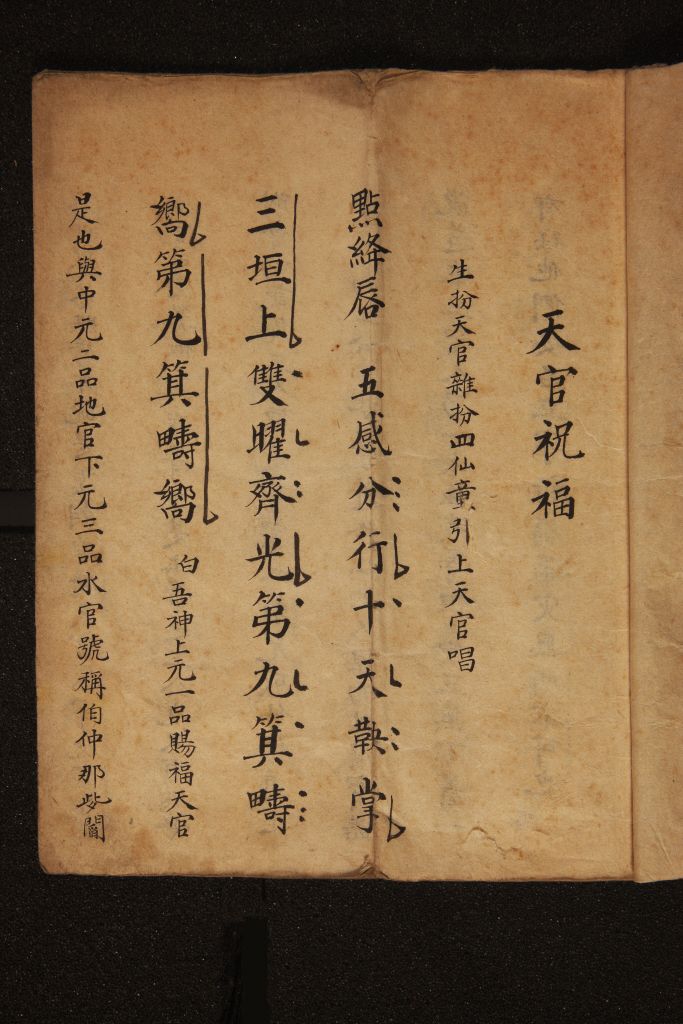 天官祝福
生扮天官雜扮四仙童引上天官唱
點絳唇 五感分行十天鞅掌
三垣上雙曜齊光第九箕疇
嚮第九箕疇嚮 白吾神上元一品賜福天官
是也與中元二品地官下元三品水官號稱伯仲那些閻